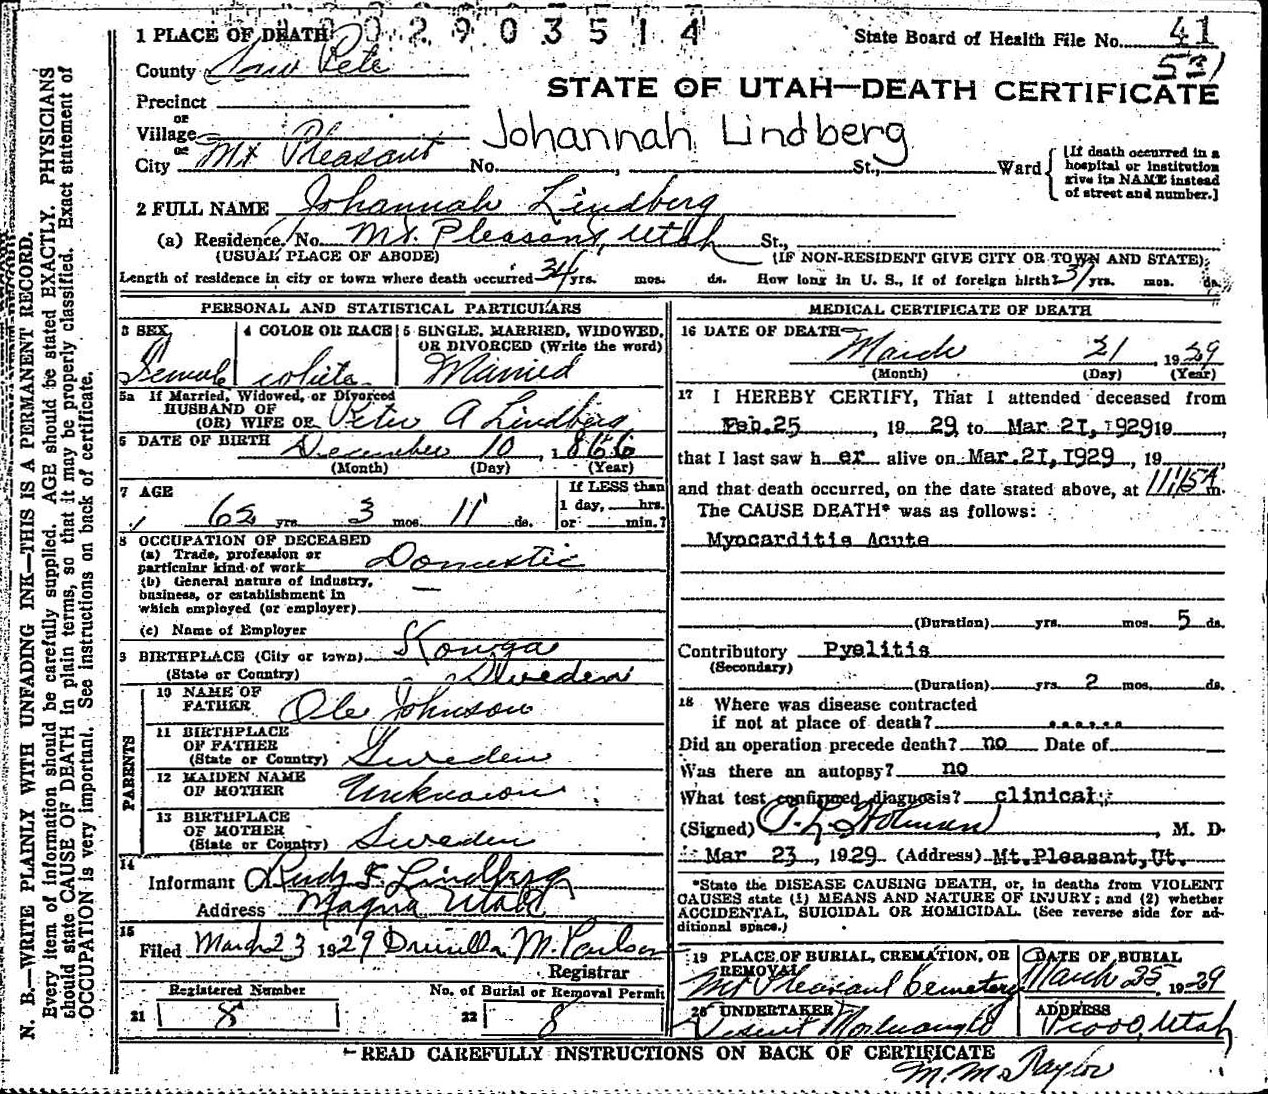 1 PLACE OF DEATH 0 2 9 0 3 5 1 4
State Board of Health File No. 41
531
County San Pete
STATE OF UTAH—DEATH CERTIFICATE
Precinct
or
Village
or
City Mt Pleasant No. , St., Ward
Johannah Lindberg
[If death occurred in a
hospital or institution
give its NAME instead
of street and number.]
2 FULL NAME Johannah Lindberg
(a) Residence. No. Mt. Pleasant, Utah St.,
(USUAL PLACE OF ABODE) (IF NON-RESIDENT GIVE CITY OR TOWN AND STATE)
Length of residence in city or town where death occurred 34 yrs. mos. ds. How long in U. S., if of foreign birth? 37 yrs. mos. ds.
PERSONAL AND STATISTICAL PARTICULARS
3 SEX
Female
4 COLOR OR RACE
white
5 SINGLE, MARRIED, WIDOWED,
OR DIVORCED (Write the word)
Married
5a If Married, Widowed, or Divorced
HUSBAND OF
(OR) WIFE OF Peter A Lindberg
6 DATE OF BIRTH December 10, 1866
(Month) (Day) (Year)
7 AGE
62 yrs 3 mos 11 ds.
If LESS than
1 day, hrs.
or min.?
8 OCCUPATION OF DECEASED
(a) Trade, profession or
particular kind of work Domestic
(b) General nature of industry,
business, or establishment in
which employed (or employer) —
(c) Name of Employer
9 BIRTHPLACE (City or town) Konga
(State or Country) Sweden
PARENTS
10 NAME OF
FATHER Ole Johnson
11 BIRTHPLACE
OF FATHER
(State or Country) Sweden
12 MAIDEN NAME
OF MOTHER Unknown
13 BIRTHPLACE
OF MOTHER
(State or Country) Sweden
14
Informant Rudy F Lindberg
Address Magna Utah
15
Filed March 23 1929 Druilla M. Poulson
Registrar
Registered Number
21 8
No. of Burial or Removal Permit
22 8
MEDICAL CERTIFICATE OF DEATH
16 DATE OF DEATH
March 21 1929
(Month) (Day) (Year)
17 I HEREBY CERTIFY, That I attended deceased from
Feb.25, 19 29 to Mar 21, 1929 19 ,
that I last saw h er alive on Mar.21,1929, 19 ,
and that death occurred, on the date stated above, at 11:15A m.
The CAUSE DEATH* was as follows:
Myocarditis Acute
(Duration) yrs. mos. 5 ds.
Contributory Pyelitis
(Secondary)
(Duration) yrs. 2 mos. ds.
18 Where was disease contracted
if not at place of death? ......
Did an operation precede death? no Date of
Was there an autopsy? no
What test confirmed diagnosis? clinical
(Signed) P. L. Holman, M. D.
Mar 23, 1929 (Address) Mt.Pleasant,Ut.
*State the DISEASE CAUSING DEATH, or, in deaths from VIOLENT
CAUSES state (1) MEANS AND NATURE OF INJURY; and (2) whether
ACCIDENTAL, SUICIDAL OR HOMICIDAL. (See reverse side for ad-
ditional space.)
19 PLACE OF BURIAL, CREMATION, OR
REMOVAL
Mt Pleasant Cemetery
DATE OF BURIAL
March 25, 1929
20 UNDERTAKER
Deseret Mortuary
ADDRESS
Provo, Utah
READ CAREFULLY INSTRUCTIONS ON BACK OF CERTIFICATE
M. M. Taylor
N. B.—WRITE PLAINLY WITH UNFADING INK—THIS IS A PERMANENT RECORD.
Every item of information should be carefully supplied. AGE should be stated EXACTLY. PHYSICIANS
should state CAUSE OF DEATH in plain terms, so that it may be properly classified. Exact statement of
OCCUPATION is very important. See instructions on back of certificate.